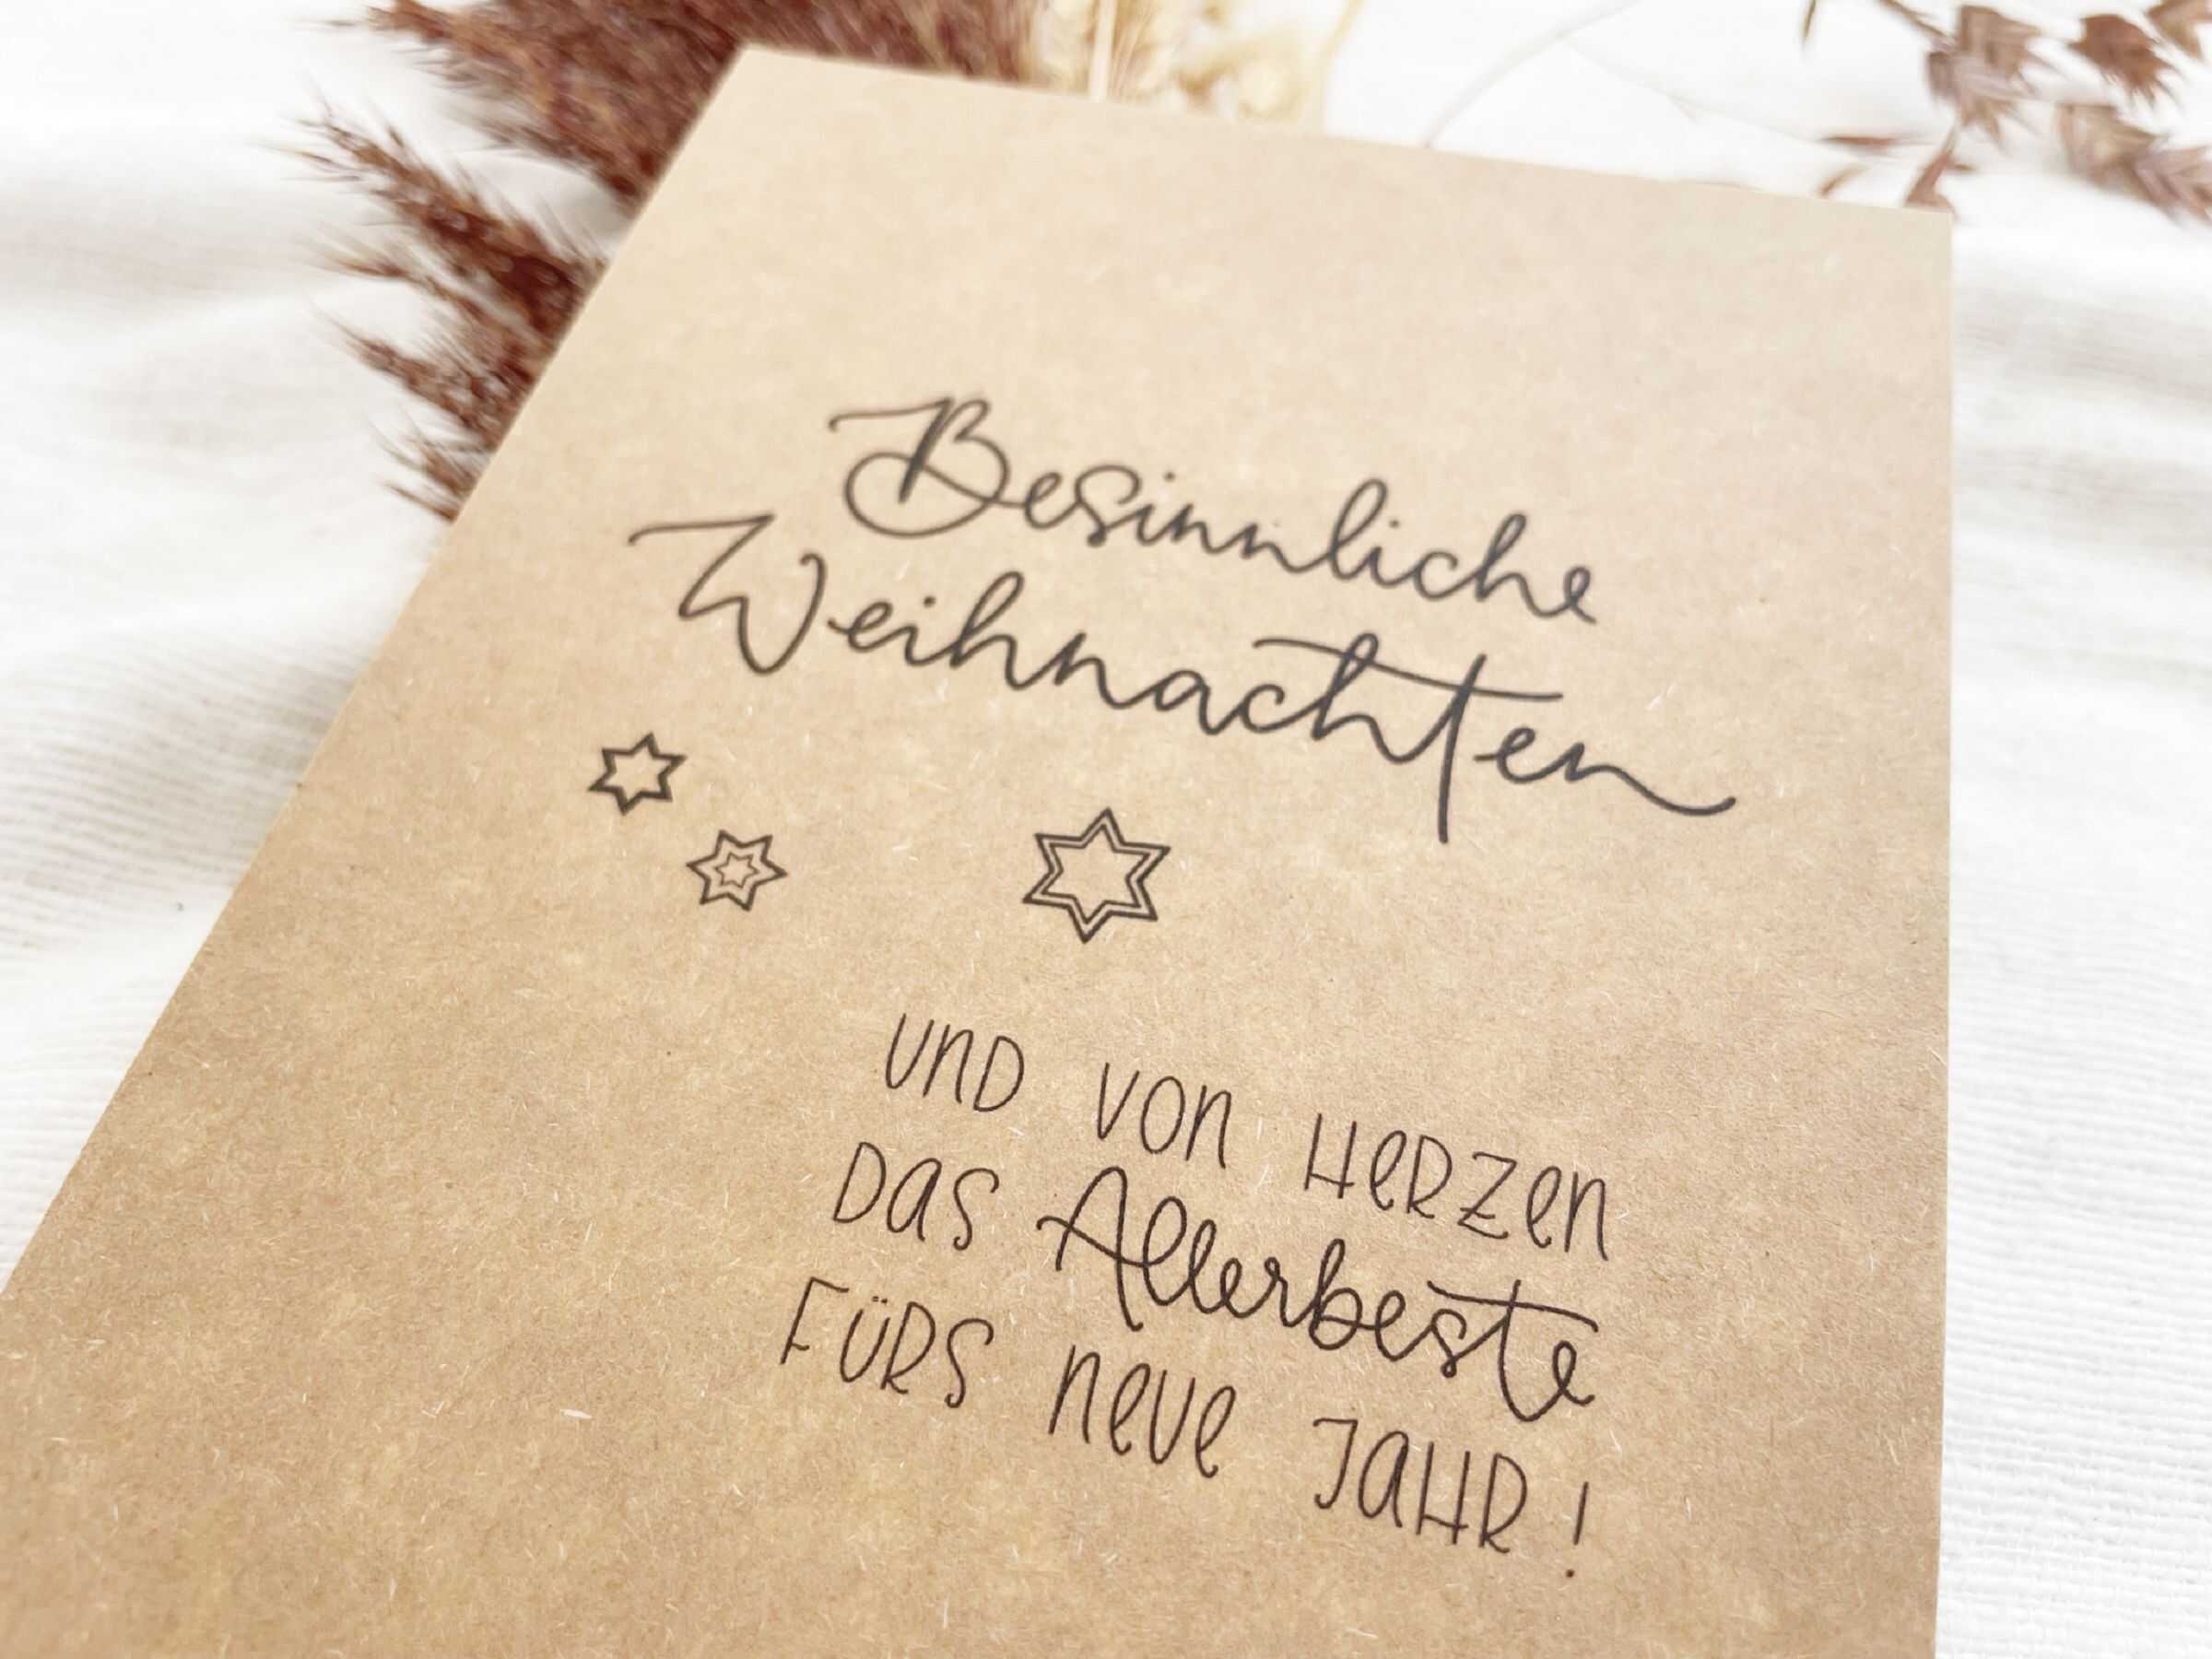 Besinnliche
Weihnachten
UND VON HERZEN
DAS Allerbeste
FÜRS NEUE JAHR!